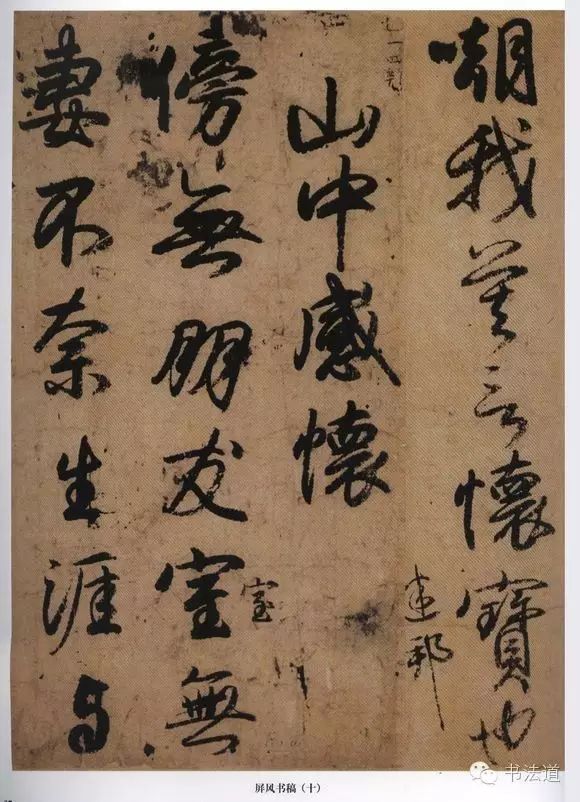 嘲我莫言懷寶也
迷邦
山中感懷
傍無朋友室無
室
妻不奈生涯与
屏风书稿（十）
书法道